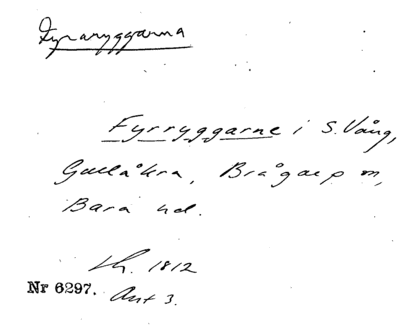 Fyraryggarna
Fyrryggarne i S. Vång,
Gullåkra, Brågarp sn,
Bara hd.
Lh. 1812
Nr 6297. Ant 3.